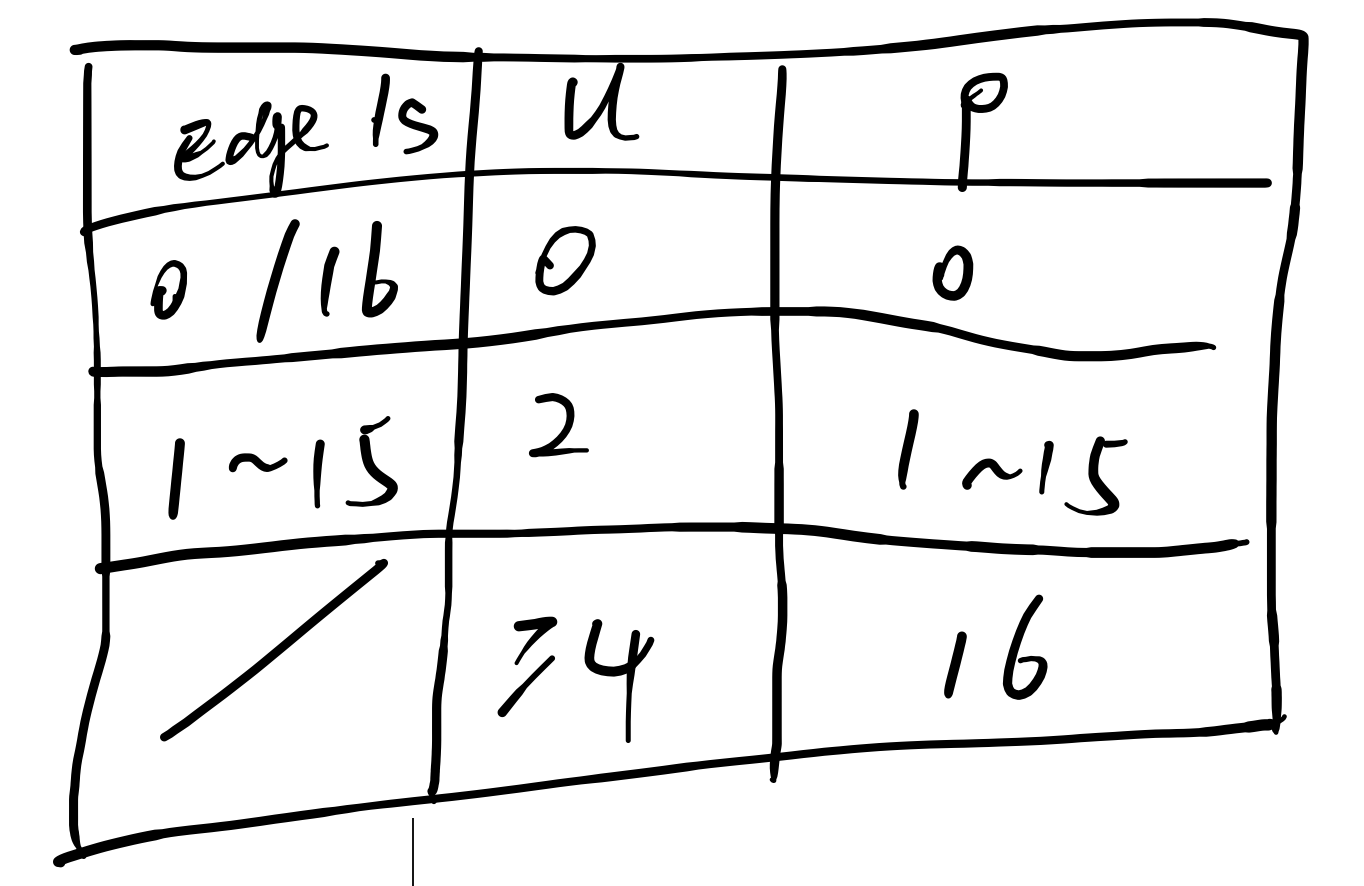 edge 1s U P
0 / 16 0 0
1 ~ 15 2 1 ~ 15
/ ≥4 16